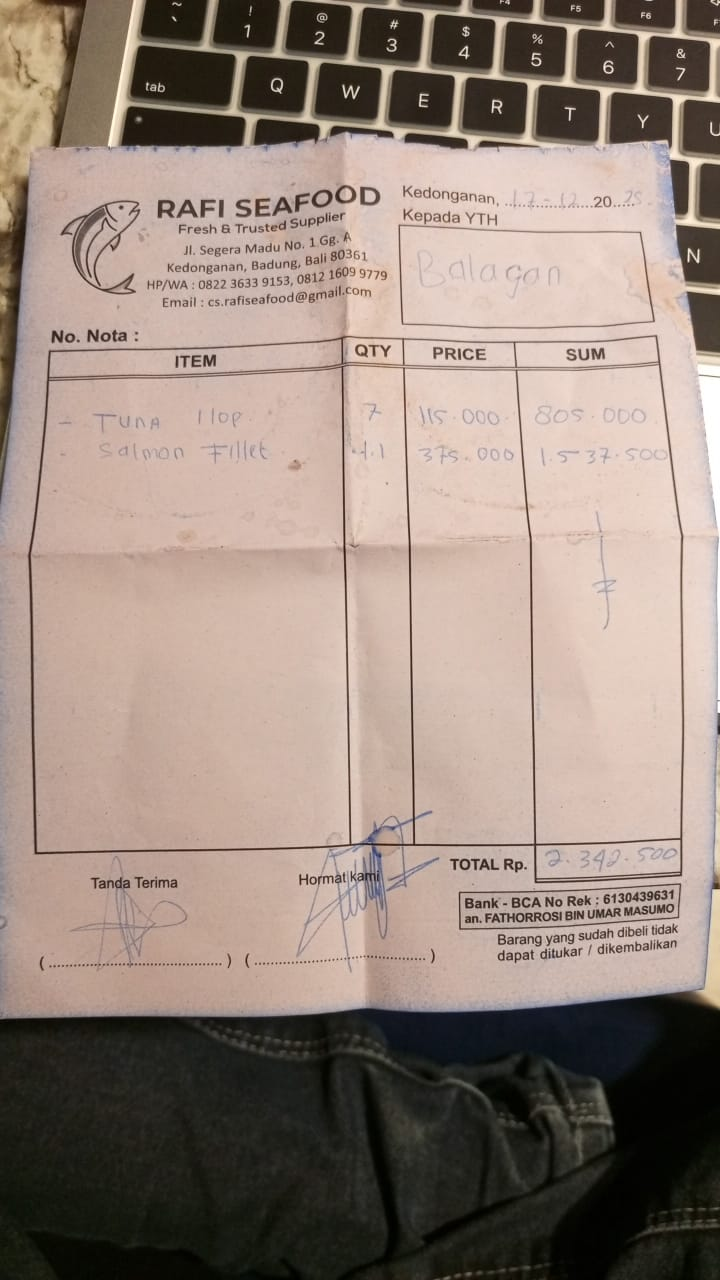 RAFI SEAFOOD
Fresh & Trusted Supplier
Jl. Segera Madu No. 1 Gg. A
Kedonganan, Badung, Bali 80361
HP/WA : 0822 3633 9153, 0812 1609 9779
Email : cs.rafiseafood@gmail.com
Kedonganan, 17-12 2025
Kepada YTH
Balagan
No. Nota :
ITEM QTY PRICE SUM
- TUNA 7 115.000 805.000
- Salmon Fillet 4.1 375.000 1.537.500
TOTAL Rp. 2.342.500
Tanda Terima
Hormat kami
Bank - BCA No Rek : 6130439631
an. FATHORROSI BIN UMAR MASUMO
Barang yang sudah dibeli tidak
dapat ditukar / dikembalikan
~ `
! 1
@ 2
# 3
$ 4
% 5
^ 6
& 7
F5
F6
tab
Q
W
E
R
T
Y
U
N